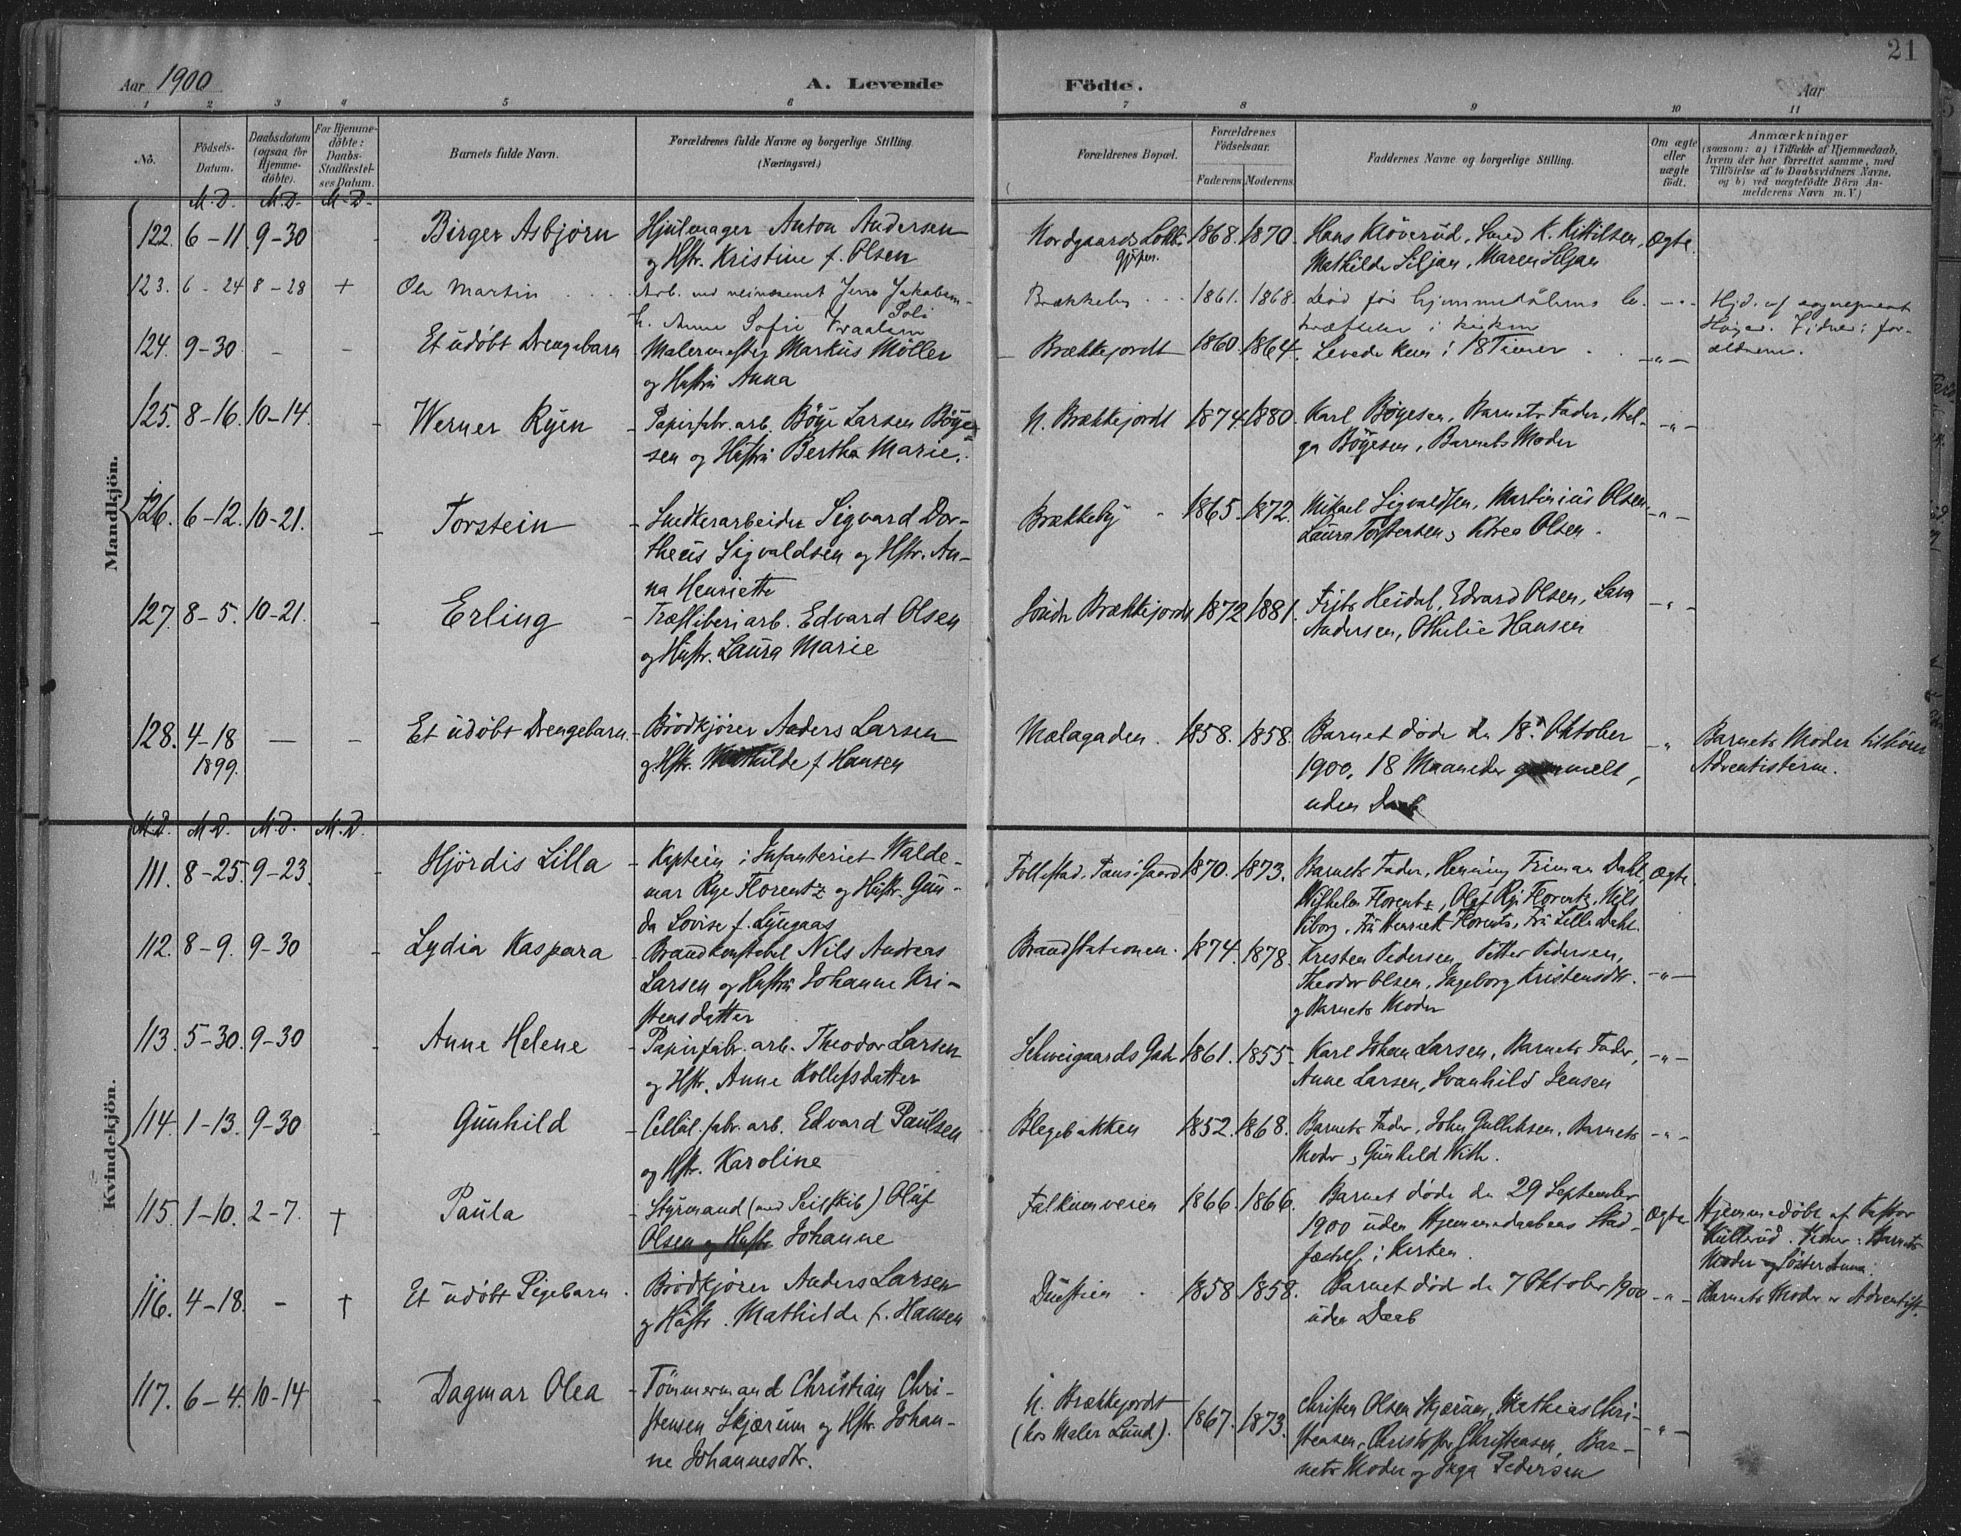 21
Aar 1900
A. Levende Födte.
Aar
1 2 3 4 5 6 7 8 9 10 11
No.
Födsels-
Datum.
Daabsdatum
(ogsaa for
Hjemme-
döbte).
For Hjemme-
döbte:
Daabs-
Stadfæstel-
ses Datum.
Barnets fulde Navn.
Forældrenes fulde Navne og borgerlige Stilling.
(Næringsvei.)
Forældrenes Bopæl.
Forældrenes
Födselsaar.
Faderens
Moderens.
Faddernes Navne og borgerlige Stilling.
Om ægte
eller
uægte
födt.
Anmærkninger
(saasom: a) i Tilfælde af Hjemmedaab,
hvem der har forrettet samme, med
Tilföielse af to Daabsvidners Navne,
og b) ved uægtefödte Börn An-
melderens Navn m. V.)
M. D. M. D. M. D.
Mandkjön.
122. 6-11. 9-30
Birger Asbjørn
Hjulmager Anton Andersen
og Hstr. Kristine f. Olsen
Nordgaards
1868. 1870.
Hans Kløverud, Smed K. Kittilsen,
Mathilde Siljan, Maren Siljan
Ægte
123. 6-24 8-28 +
Ole Martin
Arb. Jens Jakobsen
Anne Sofie
Brækkeby
1861. 1868.
Død før hjemmedåbens be-
kræftelse i kirken
-"-
Hjd. af
Vidner: for-
ældrene.
124. 9-30. - -
Et udøbt Drengebarn
Malermester Markus Møller
og Hustru Anna
Brækkejordt
1860. 1864.
Levede kun i 18 Timer
-"-
125. 8-16. 10-14.
Werner Ryen
Papirfabr. arb. Böye Larsen Böye-
sen og Hustru Bertha Marie.
N. Brækkejordt
1874 1880.
Karl Böyesen, Barnets Fader, Hel-
ga Böyesen, Barnets Moder
-"-
126. 6-12. 10-21.
Torstein
Snedkerarbeider Sigvard Dor-
theus Sigvaldsen og Hstr. An-
na Henriette
Brækkeby
1865. 1872.
Mikael Sigvaldsen, Martinius Olsen,
Laura Torstensen, Olsen.
-"-
127. 8-5. 10-21.
Erling
Træsliberiarb. Edvard Olsen
og Hustr. Laura Marie
Søndr Brækkejordt
1872 1881.
Heidal, Edvard Olsen, Lava
Andersen, Othilie Hansen
-"-
128. 4-18
1899. - -
Et udøbt Drengebarn.
Brödkjörer Anders Larsen
og Hstr. Mathilde f. Hansen
Mælagaden.
1858. 1858.
Barnet døde den 18de Oktober
1900, 18 Maaneder gammelt,
uden Daab
-"
Barnets Moder tilhører
Adventisterne.
M. D. M. D. M. D. M. D.
Kvindekjön.
111. 8-25. 9-23.
Hjördis Lilla
Kaptein i Infanteriet Walde-
mar Rye Florentz og Hustr. Gun-
da Lovise f. Lyngaas
Follestad
1870. 1873.
Barnets Fader, Henning Friman Dahl,
Wilhelm Florentz, Olaf Rye Florentz, Nils
Viborg, Fru Henriette Florentz, Fru Lilla Dahl.
Ægte.
112. 8-9. 9-30
Lydia Kaspara
Brandkonstabel Nils Andreas
Larsen og Hustru Johanne Kri-
stensdatter
Brandstationen.
1874. 1878.
Kresten Pedersen, Petter Pedersen,
Theodor Olsen, Ingeborg Kristensdtr.
og Barnets Moder
-"-
113. 5-30. 9-30
Anne Helene
Papirfabr. arb. Theodor Larsen
og Hstr. Anne Kollefsdatter
Schweigaards Gade
1861. 1855.
Karl Johan Larsen, Barnets Fader,
Anne Larsen, Svanhild Jensen
-"-
114. 1-13. 9-30
Gunhild
Cellul. fabr. arb. Edvard Paulsen
og Hstr. Karoline
Blegebakken
1852. 1868.
Barnets Fader, John Gulliksen, Barnets
Moder, Gunhild With.
-"-
115. 1-10. 2-7. †
Paula
Styrmand (med Seilskib) Oluf
Olsen og Hustr Johanne
Falkumveien
1866. 1866.
Barnet døde den 29 September
1900 uden Hjemmedaabens Stad-
fæstelse i Kirken.
Ægte
Hjemmedøbt af Pastor
Kullerud. Vidner: Barnets
Moder og Søster Anna.
116. 4-18. - †
Et udøbt Pigebarn.
Brödkjörer Anders Larsen
og Hustr. Mathilde f. Hansen
Duestien
1858 1858.
Barnet døde den 7 Oktober 1900
uden Daab
-"-
Barnets Moder er Adventist.
117. 6-4. 10-14
Dagmar Olea
Tømmermand Christian Chri-
stensen Skjærum og Hstr. Johan-
ne Johannesdtr.
N. Brækkejordt
(hos Maler Lund).
1867. 1873.
Christen Olsen Skjærum, Mathias Chri-
stensen, Christoffer Christensen, Bar-
nets Moder og Inga Pedersen
-"-